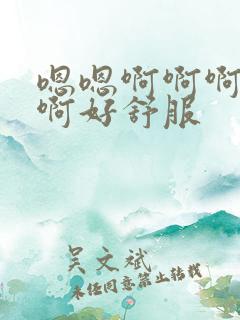 嗯嗯啊啊啊
啊好舒服
吴文斌
未经同意禁止转载